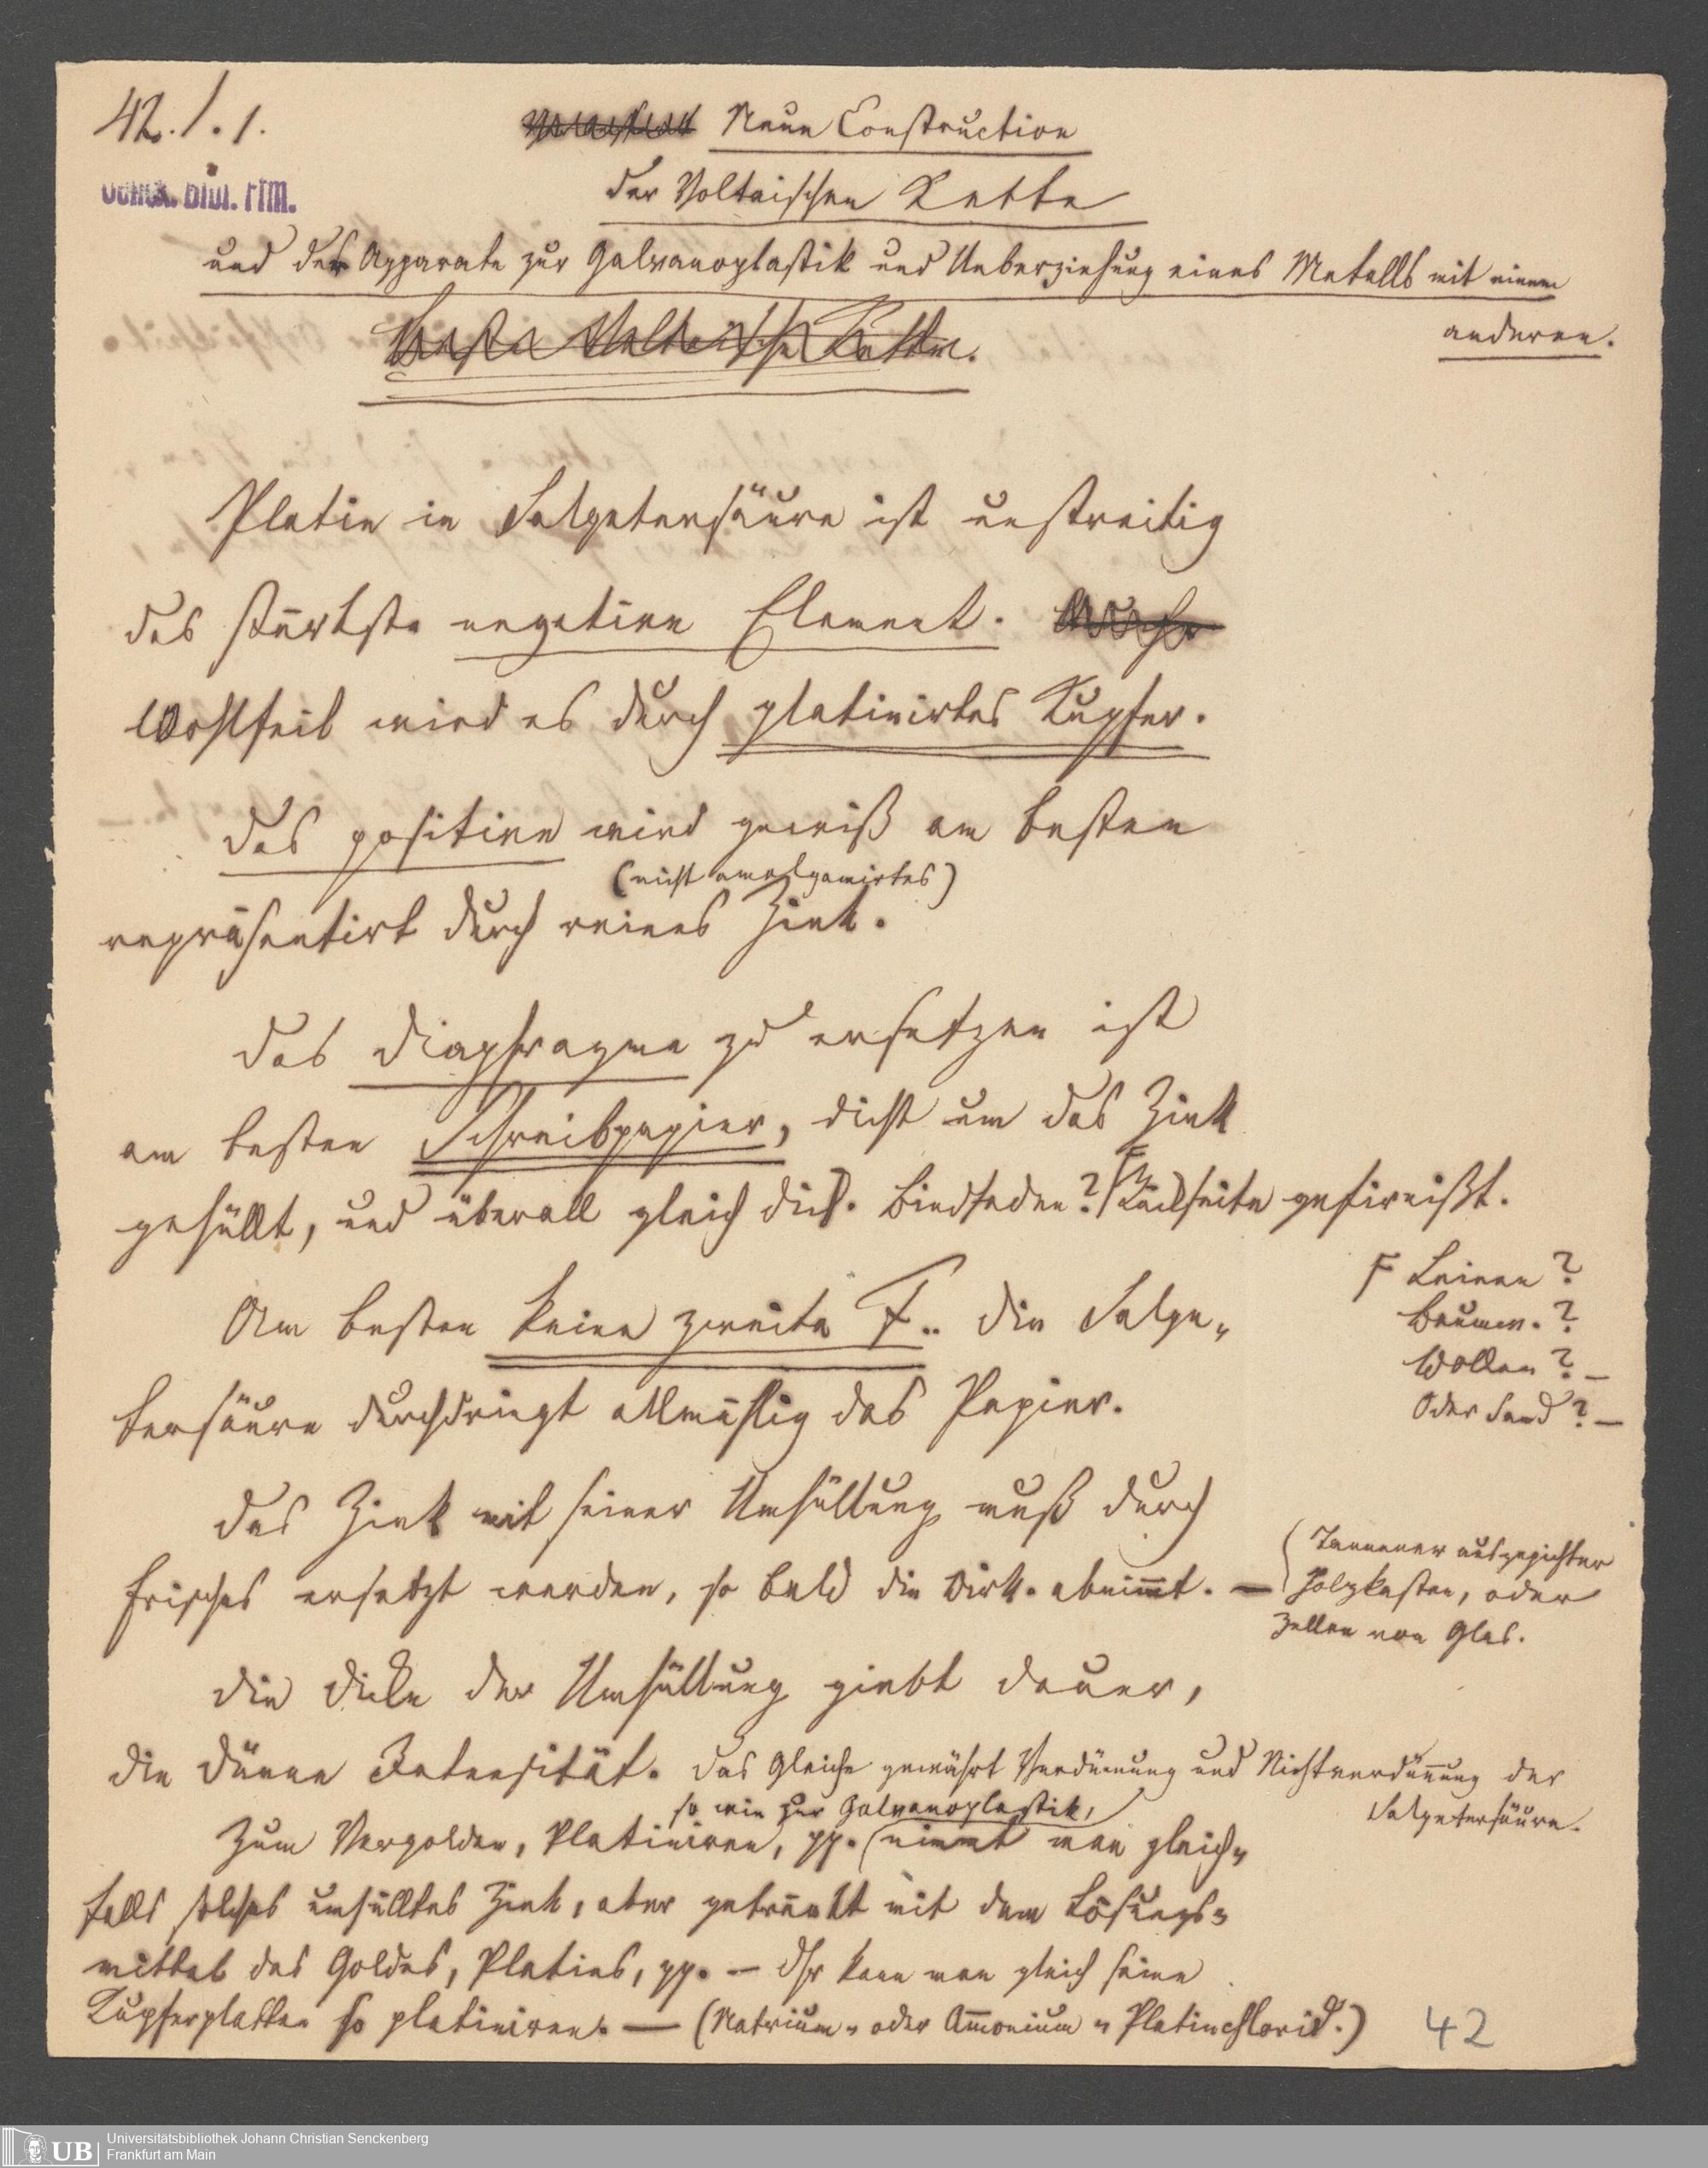 42./.1.
Neue Construction
Senck. Bibl. Ffm.
der Voltaischen Kette
und der Apparate zur Galvanoplastik und Ueberziehung eines Metalls mit einem
anderen.
Platin in Salpetersäure ist unstreitig
das stärkste negative Element.
Wohlfeil wird es durch platinirtes Kupfer.
Das positive wird gewiß am besten
(nicht amalgamirtes)
repräsentirt durch reines Zink.
Das Diaphragma zu ersetzen ist
am besten Schreibpapier, dicht um das Zink
gehüllt, und überall gleich dick. Bindfaden? Rückseite gefirnißt.
F Leinen?
Baumw.?
Wollen? –
Oder Sand? –
Am besten keine zweite F.. Die Salpe-
tersäure durchdringt allmählig das Papier.
Das Zink mit seiner Umhüllung muß durch
frisches ersetzt werden, so bald die Wirk. abnimmt. —
(Tannener ausgepichter
Holzkasten, oder
Zellen von Glas.
Die Dicke der Umhüllung giebt Dauer,
die Dünne Intensität. Das Gleiche gewährt Verdünnung und Nichtverdünnung der
Salpetersäure.
so wie zur Galvanoplastik,
Zum Vergolden, Platiniren, pp. nimmt man gleich-
falls solches umhülltes Zink, aber getränkt mit dem Lösungs-
mittel des Goldes, Platins, pp. — Ihr kann man gleich seine
Kupferplatten so platiniren. — (Natrium- oder Ammonium-Platinchlorid.)
42
UB
Universitätsbibliothek Johann Christian Senckenberg
Frankfurt am Main